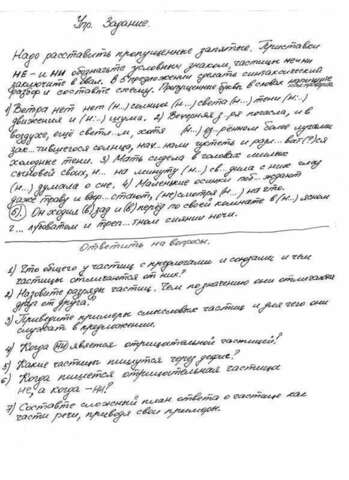 Упр. Задание.
Надо расставить пропущенные запятые. Приставки
НЕ- и НИ обозначьте условным знаком, частицы не и ни
заключите в овал. В 5 предложении сделать синтаксический
разбор и составьте схему. Пропущенные буквы в словах
1) Ветра нет нет (н..) солнца (н..) света (н..) тени (н..)
движения и (н..) шума. 2) Вечерняя з..ря погасла, и в
воздухе, ещё светл..м, хотя (н..) оз..рённом более лучами
зак..тившегося солнца, нач..нали густеть и разл..ват(?)ся
холодные тени. 3) Мать сидела в головах
сыновей своих, н.. на минуту (н..) св..дила с них глаз
(н..) думала о сне. 4) Маленькие осинки
даже траву и выр..стают, (не)смотря (н..) на что.
5). Он ходил (в)зад и (в)перёд по своей комнате в (н..) ясном
г..луб..ватом и треп..тном сиянии ночи.
Ответить на вопросы.
1) Что общего у частиц с предлогами и союзами и чем
частицы отличаются от них?
2) Назовите разряды частиц. Чем по значению они отличаются
друг от друга?
3) Приведите примеры смысловых частиц и для чего они
служат в предложении.
4) Когда ни является отрицательной частицей?
5) Какие частицы пишутся через дефис?
6) Когда пишется отрицательная частица
НЕ, а когда – НИ?
7) Составьте сложный план ответа о частице как
части речи, приводя свои примеры.